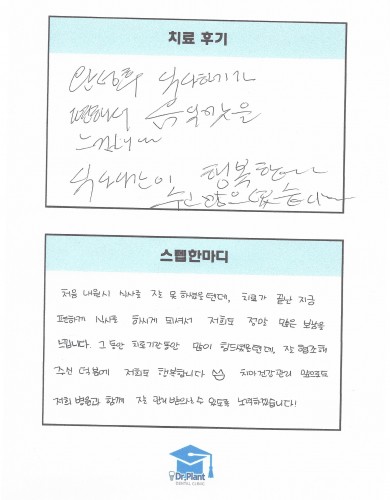 치료 후기
완성후 식사하기가
편해서 음식맛을
느낍니다
식사시간이 행복한
스텝한마디
처음 내원시 식사를 잘 못 하셨을텐데, 치료가 끝난 지금
편하게 식사를 하시게 되셔서 저희도 정말 많은 보람을
느낍니다. 그동안 치료기간동안 많이 힘드셨을텐데, 잘 협조해
주신 덕분에 저희도 행복합니다 치아건강관리 앞으로도
저희 병원과 함께 잘 관리받으실 수 있도록 노력하겠습니다!
Dr.Plant
DENTAL CLINIC